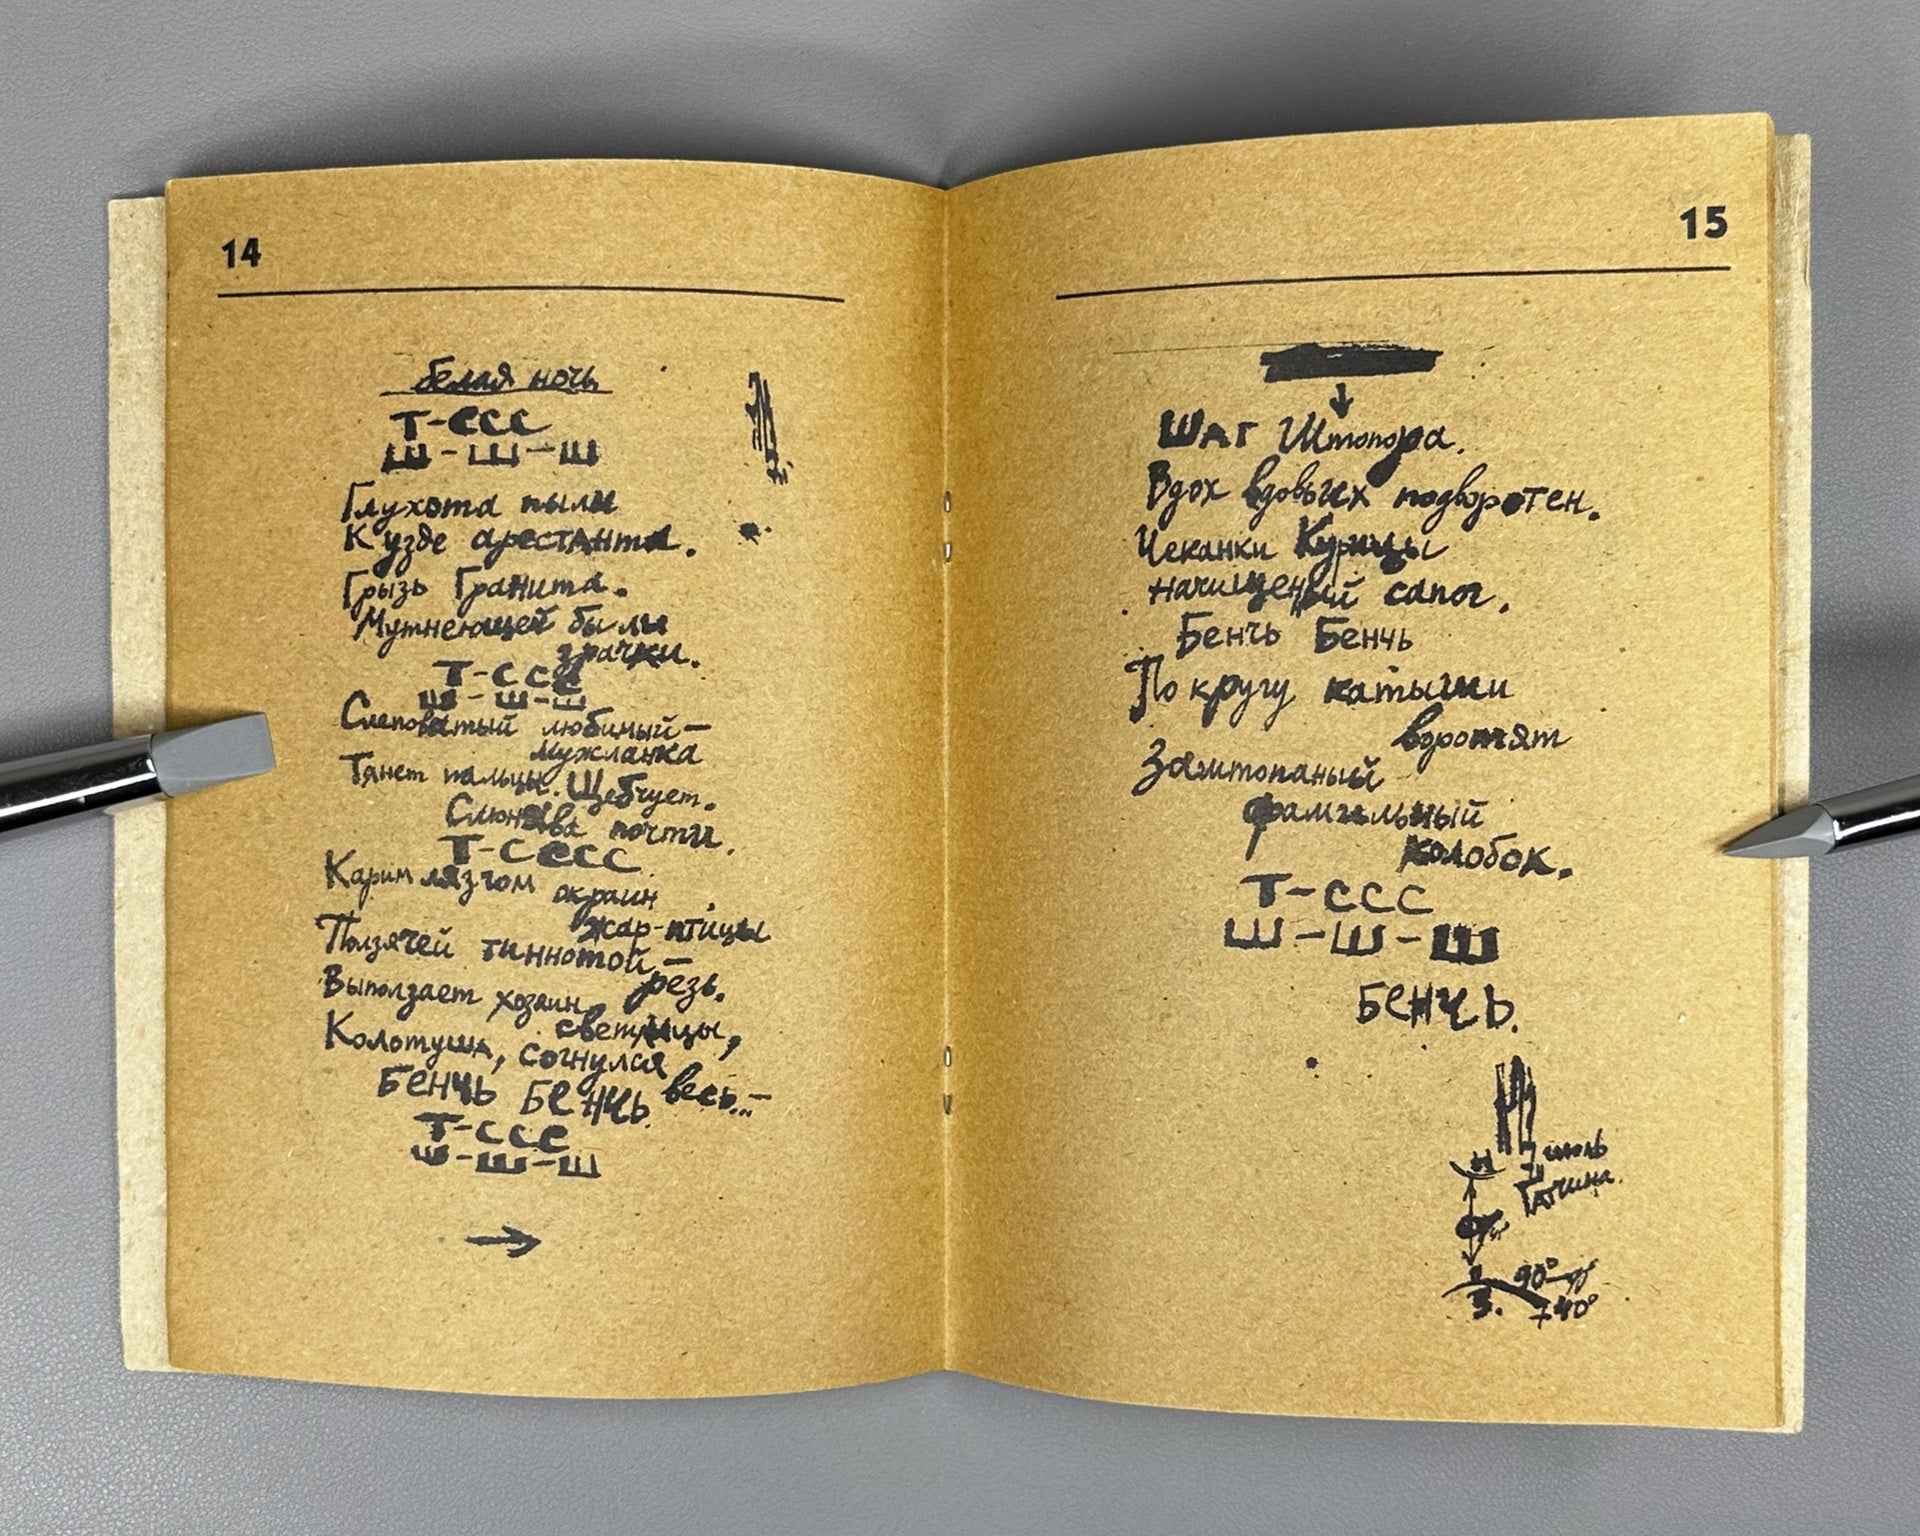 14
белая ночь
Т-ссс
Ш-Ш-Ш
Глухота пыли
К узде арестанта.
Грызь Гранита.
Мутнеющей были
зрачки.
Т-ссс
Ш-Ш-Ш
Слеповатый любимый—
мужланка
Тянет пальцы. Щебчует.
почти.
Т-сссс
Карим лязгом окраин
жар-птицы
Ползячей тиннотой—
резь.
Выползает хозяин
светлицы,
Колотуша, согнулся
весь...—
Бенчь Бенчь.
Т-ссс
Ш-Ш-Ш
15
Шаг Штопора.
Вдох вдовьих подворотен.
Чеканки Курицы
начищеный сапог.
Бенчь Бенчь
По кругу катыши
воротят
Заштопаный
фамильный
колобок.
Т-ссс
Ш-Ш-Ш
Бенчь.
июль
Гатчина.
90°
З.
+40°